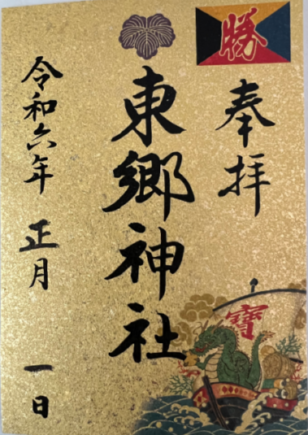 奉拝
勝
東郷神社
寶
令和六年 正月 一日